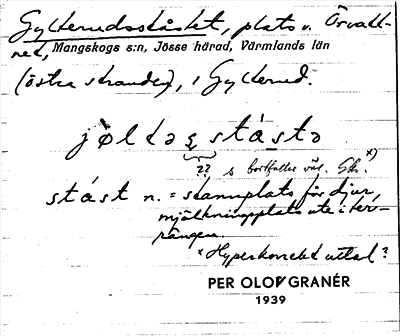 Gylterudsståstet, plats v. Örvatt-
net, Mangskogs s:n, Jösse härad, Värmlands län
(östra stranden), i Gylterud.
jøltəʂ stástə
?? s bortfaller väl. Gks. x)
stást n. = stannplats för djur,
mjölkningsplats ute i ter-
rängen.
x Hyperkorrekt uttal?
PER OLOF GRANÉR
1939